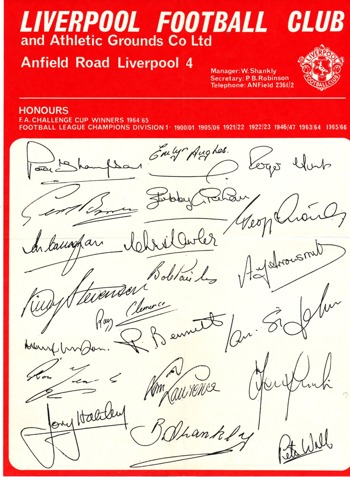 LIVERPOOL FOOTBALL CLUB
and Athletic Grounds Co Ltd
Anfield Road Liverpool 4
Manager: W. Shankly
Secretary: P.B. Robinson
Telephone: ANField 2361/2
LIVERPOOL
FOOTBALL CLUB
HONOURS
F.A. CHALLENGE CUP WINNERS 1964/65
FOOTBALL LEAGUE CHAMPIONS DIVISION 1 · 1900/01 1905/06 1921/22 1922/23 1946/47 1963/64 1965/66
Peter Thompson
Emlyn Hughes.
Roger Hunt
Geoff Strong
Bobby Graham
Ian Callaghan
Chris Lawler
Bob Paisley
A Arrowsmith
Ray Clemence
R. Bennett
Ian St John
Tom Lawrence
Tony Hateley
B Shankly
Peter Wall